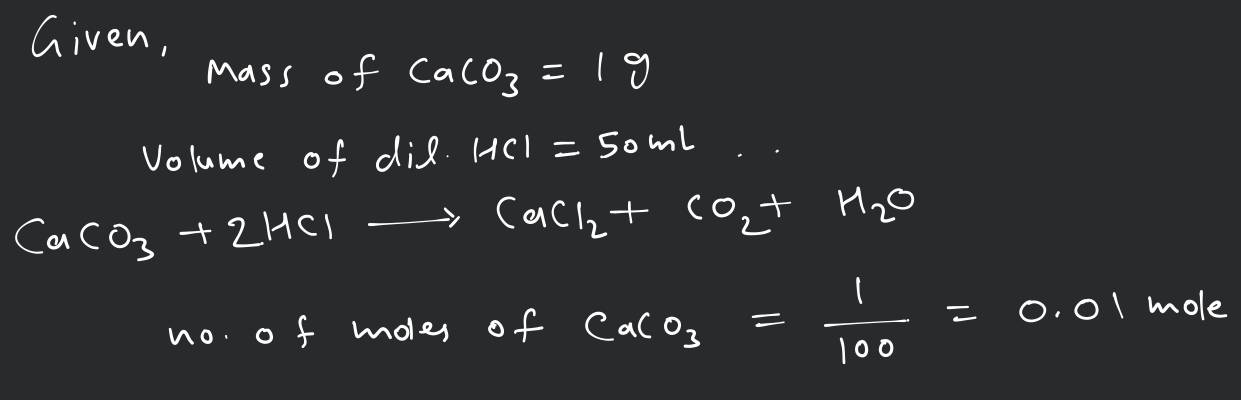 Given,
Mass of CaCO₃ = 1 g
Volume of dil. HCl = 50 mL ..
CaCO₃ + 2HCl ⟶ CaCl₂ + CO₂ + H₂O
no. of moles of CaCO₃ = 1/100 = 0.01 mole